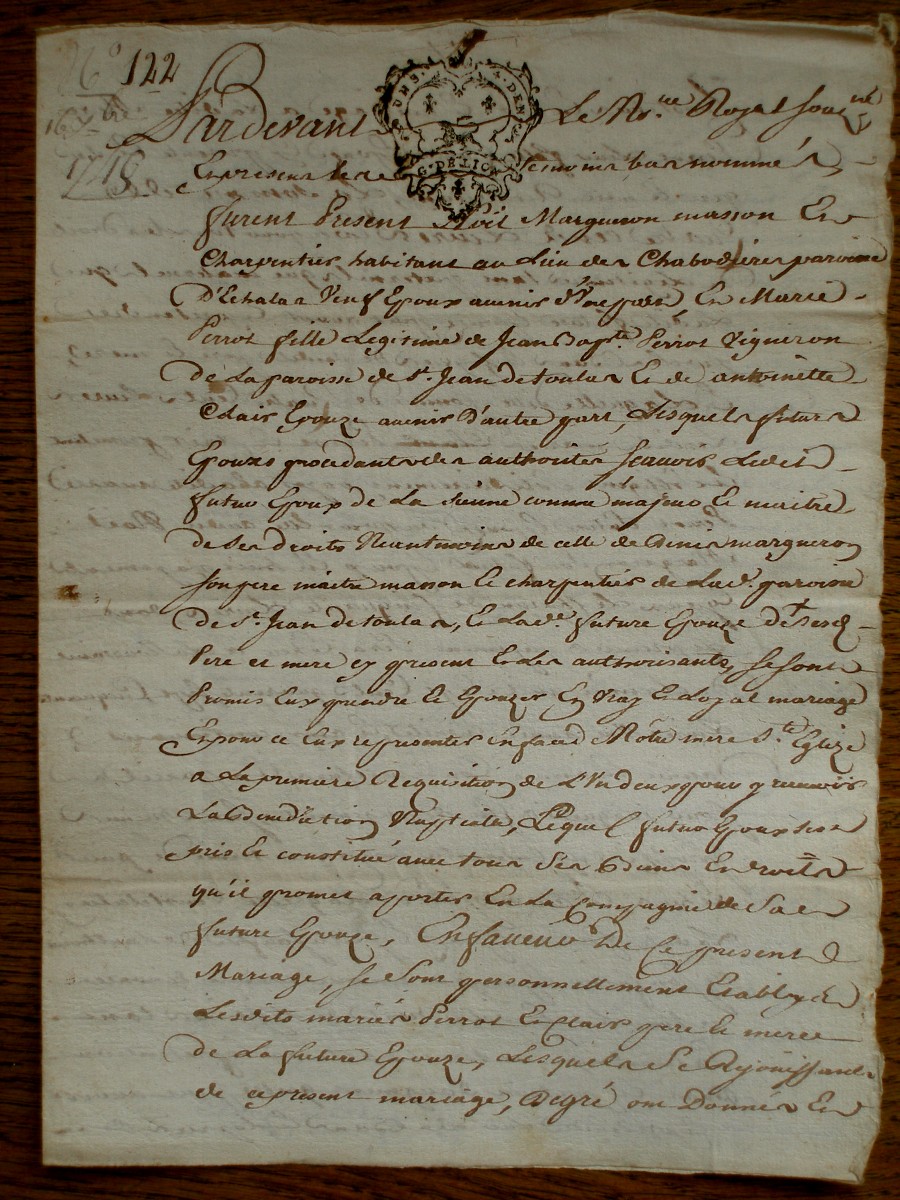 N.º 122
1718
Pardevant Le No.re Royal sous.né
Et present les temoins bas nommés,
furent Present Noël Margueron masson Et
Charpentier habitant au Lieu des Chabodières paroisse
D'Echalas Veuf Epoux avenir d'une part, Et Marie
Perrot fille Legitime de Jean Bap.te Perrot Vigneron
de La paroisse de S.t Jean de toulas Et de antoinette
Clair Epouze avenir D'autre part, Lesquels futurs
Epoux procedants des authorités scavoir Ledit
futur Epoux de La sienne comme majeur Et maitre
de ses droits Neantmoins de celle de Denis margueron
son pere maitre masson Et charpentier de Lad. paroisse
de S.t Jean de toulas, Et Lad.e future Epouze de sesd.
Pere et mere cy present Et Les authorisants, se sont
Promis Eux prendre Et Epouzer En Vray Et Loyal mariage
Et pour ce Eux representer En face de Notre mere S.te Eglize
a La premiere Requisition de L'Un deux pour y recevoir
La Benediction Nuptialle, Lequel futur Epoux sest
pris Et constitué avec tous ses Biens Et droits
qu'il promet aporter En La Compagnie de Sa
future Epouze, En faveur De Ce present
Mariage, se Sont personnellement Etablys
Lesdits mariés Perrot Et Clair pere Et mere
de La future Epouze, Lesquels se Rejoüissant
de ce present mariage, De gré ont Donnés Et
G. DE LION